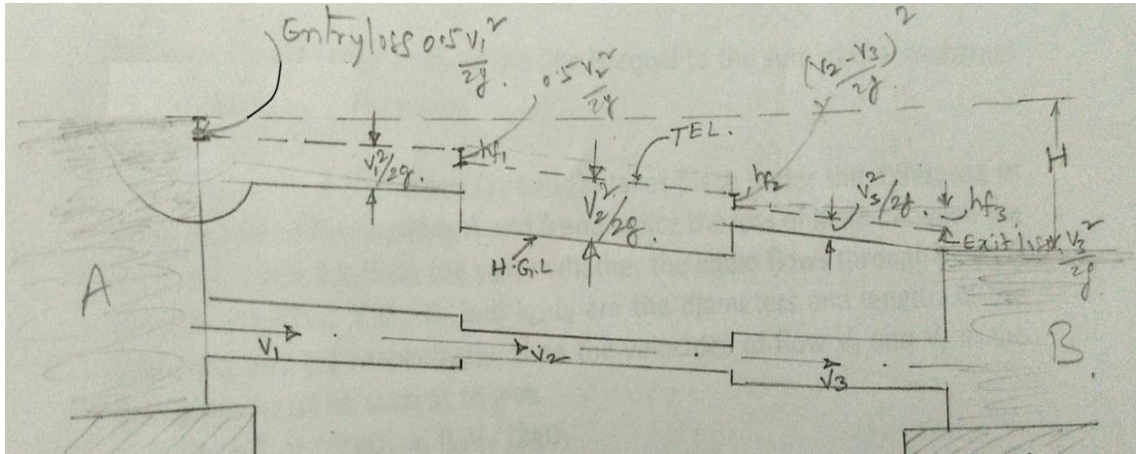 Entry loss 0.5 V₁²/2g.
0.5 V₂²/2g
(V₂-V₃)²/2g.
TEL.
hf₁
V₁²/2g.
V₂²/2g.
hf₂
V₃²/2g.
hf₃.
H
Exit loss V₃²/2g
H.G.L
A
V₁
V₂
V₃
B.